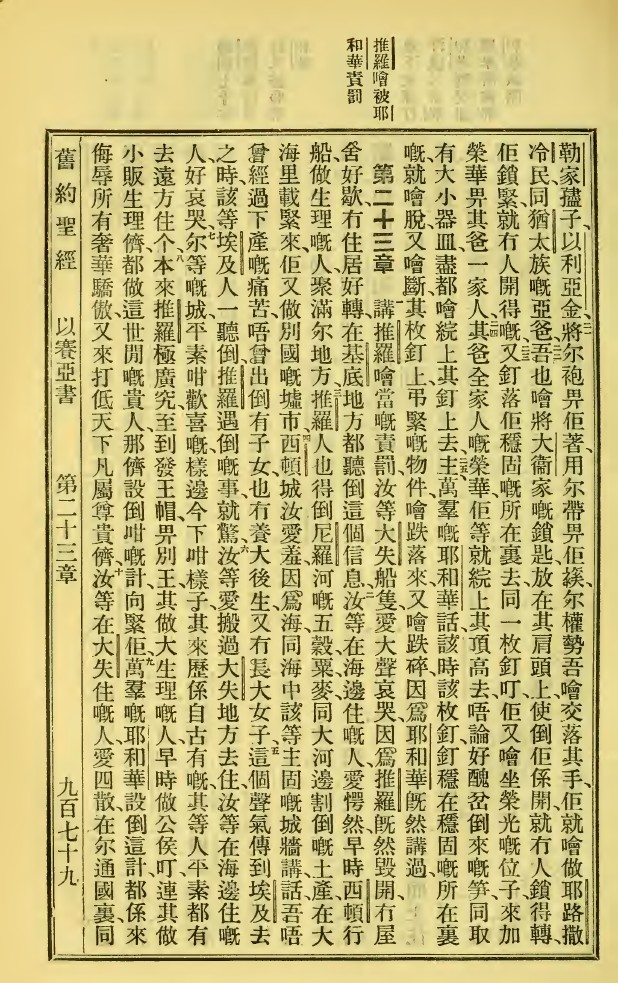 推羅噲被耶
和華責罰
勒家孻子、以利亞金、將尔袍畀佢著、用尔帶畀佢繫、尔權勢吾噲交落其手、佢就噲做耶路撒
冷民同猶太族嘅亞爸、吾也噲將大衞家嘅鎖匙、放在其肩頭上、使倒佢係開、就冇人鎖得轉、
佢鎖緊就冇人開得嘅、又釘落佢穩固嘅所在裏去、同一枚釘叮、佢又噲坐榮光嘅位子、來加
榮華畀其爸一家人、其爸全家人嘅榮華、佢等就綻上其頂高去、唔論好醜、岔倒來嘅笋、同取
有大小器皿、盡都噲綻上其釘上去、主萬羣嘅耶和華話、該時該枚釘、釘穩在穩固嘅所在裏
嘅、就噲脫、又噲斷、其枚釘上弔緊嘅物件、噲跌落來、又噲跌碎、因爲耶和華旣然講過、
第二十三章　講推羅噲當嘅責罰、汝等大失船隻、愛大聲哀哭、因爲推羅旣然毀開、冇屋
舍好歇、冇住居好轉、在基底地方都聽倒這個信息、汝等在海邊住嘅人、愛愕然、早時西頓行
船做生理嘅人、聚滿尔地方、推羅人也得倒尼羅河嘅五穀粟麥、同大河邊割倒嘅土產、在大
海里載緊來、佢又做別國嘅墟市、西頓城汝愛羞、因爲海同海中該等主固嘅城牆講話、吾唔
曾經過下產嘅痛苦、唔曾出倒有子女、也冇養大後生、又冇長大女子、這個聲氣傳到埃及去
之時、該等埃及人、一聽倒推羅遇倒嘅事、就驚、汝等愛搬過大失地方去住、汝等在海邊住嘅
人、好哀哭、尔等嘅城、平素咁歡喜嘅樣邊、今下咁樣子、其來歷係自古有嘅、其等人平素都有
去遠方住个、本來推羅極廣究、至到發王帽畀別王、其做大生理嘅人、早時做公侯叮、連其做
小販生理儕、都做這世間嘅貴人、那儕設倒咁嘅計、向緊佢、萬羣嘅耶和華設倒這計、都係來
侮辱所有奢華驕傲、又來打低天下凡屬尊貴儕、汝等在大失住嘅人、愛四散、在尔通國裏、同
舊約聖經　以賽亞書　第二十三章　九百七十九